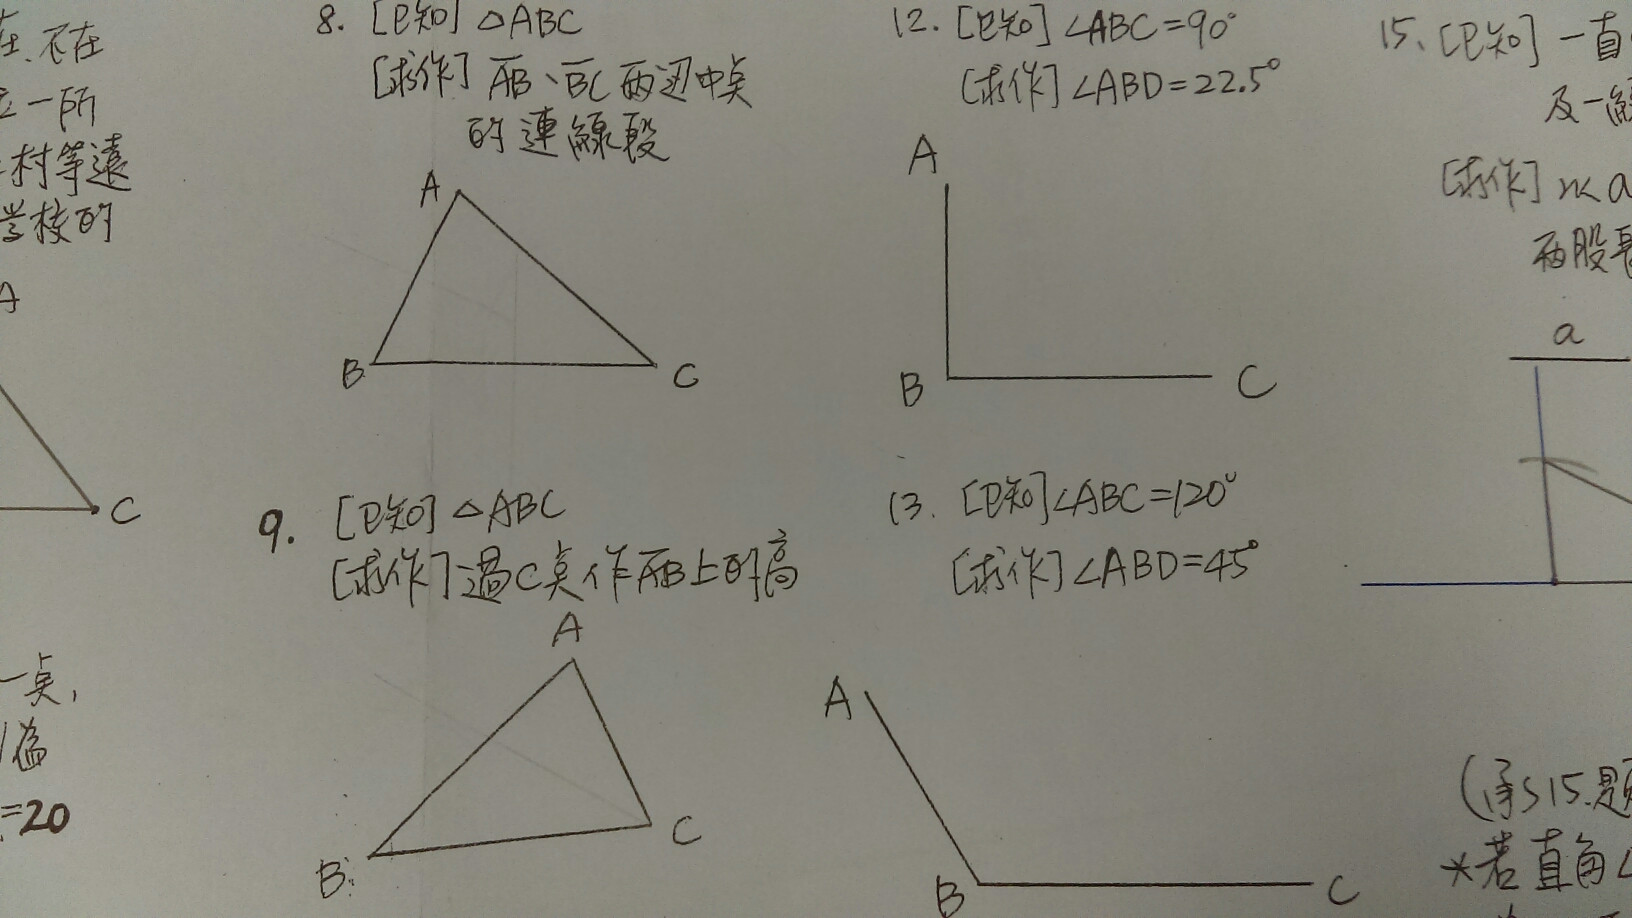 在、不在
一所
村等遠
学校的
A
C
一点,
為
=20
8. [已知] △ABC
[求作] AB、BC 兩边中点
的連線段
A
B
C
9. [已知] △ABC
[求作] 過C点作AB上的高
A
B
C
12. [已知] ∠ABC=90°
[求作] ∠ABD=22.5°
A
B
C
13. [已知] ∠ABC=120°
[求作] ∠ABD=45°
A
B
C
15、[已知] 一直
及一線
[求作] 以a
兩股長
a
(承S15.題
*若直角∠